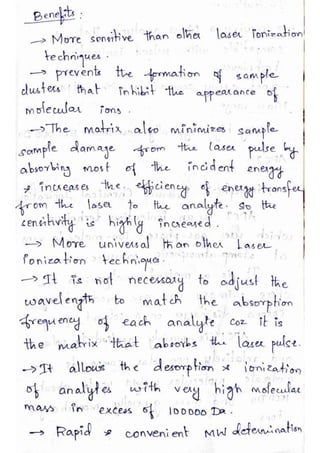 Benefits :
→ More sensitive than other laser ionization
techniques.
→ prevents the formation of sample
clusters that inhibit the appearance of
molecular ions.
→ The matrix also minimizes sample
sample damage from the laser pulse by
absorbing most of the incident energy
& increases the efficiency of energy transfer
from the laser to the analyte. So the
sensitivity is highly increased.
→ More universal than other Laser
Ionization technique.
→ It is not necessary to adjust the
wavelength to match the absorption
frequency of each analyte coz it is
the matrix that absorbs the laser pulse.
→ It allows the desorption & ionization
of analytes with very high molecular
mass in excess of 100000 Da.
→ Rapid & convenient MW determination